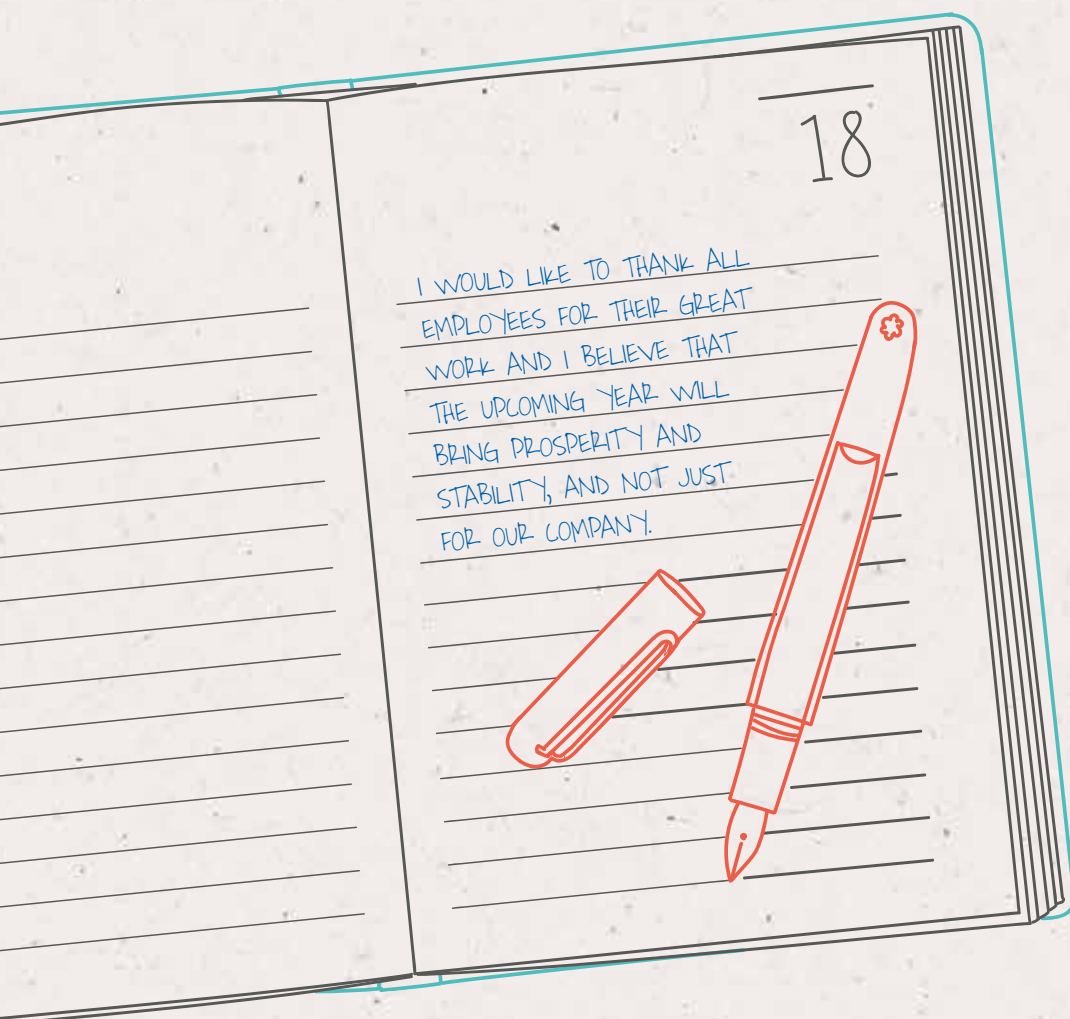 18
I WOULD LIKE TO THANK ALL
EMPLOYEES FOR THEIR GREAT
WORK AND I BELIEVE THAT
THE UPCOMING YEAR WILL
BRING PROSPERITY AND
STABILITY, AND NOT JUST
FOR OUR COMPANY.